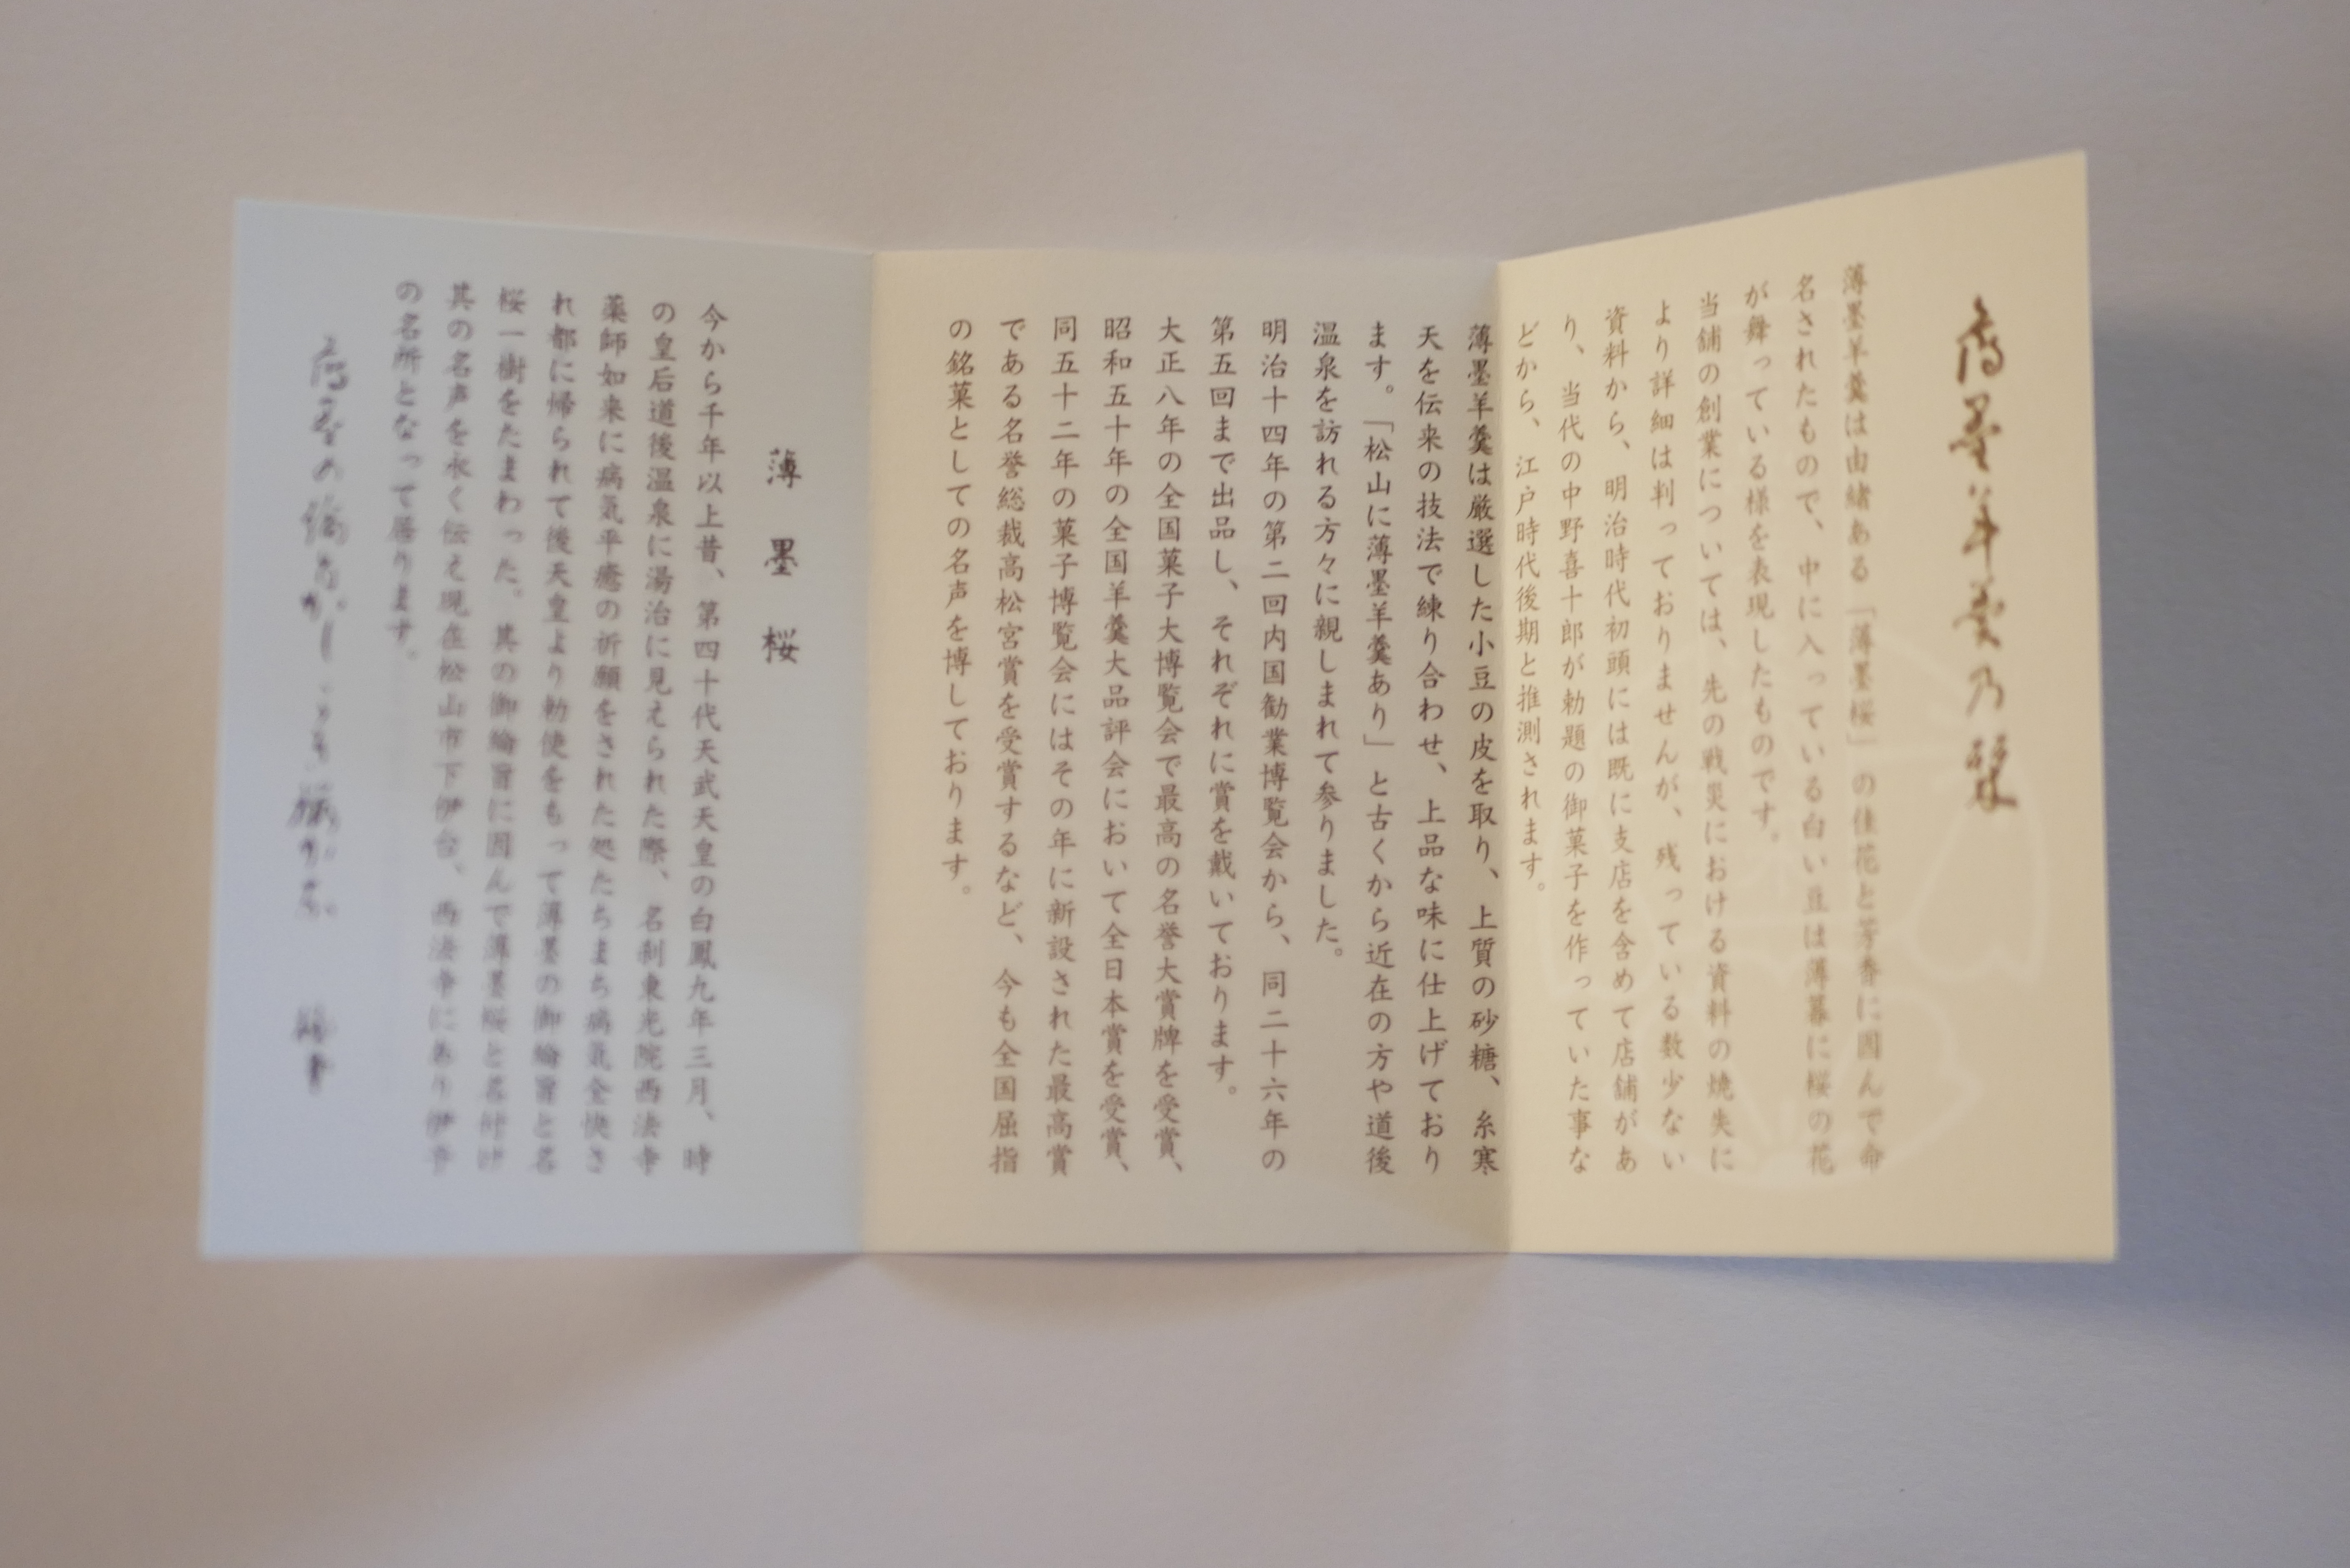 薄墨羊羹乃栞
薄墨羊羹は由緒ある「薄墨桜」の佳花と芳香に因んで命
名されたもので、中に入っている白い豆は薄暮に桜の花
が舞っている様を表現したものです。
当舗の創業については、先の戦災における資料の焼失に
より詳細は判っておりませんが、残っている数少ない
資料から、明治時代初頭には既に支店を含めて店舗があ
り、当代の中野喜十郎が勅題の御菓子を作っていた事な
どから、江戸時代後期と推測されます。
薄墨羊羹は厳選した小豆の皮を取り、上質の砂糖、糸寒
天を伝来の技法で練り合わせ、上品な味に仕上げており
ます。「松山に薄墨羊羹あり」と古くから近在の方や道後
温泉を訪れる方々に親しまれて参りました。
明治十四年の第二回内国勧業博覧会から、同二十六年の
第五回まで出品し、それぞれに賞を戴いております。
大正八年の全国菓子大博覧会で最高の名誉大賞牌を受賞、
昭和五十年の全国羊羹大品評会において全日本賞を受賞、
同五十二年の菓子博覧会にはその年に新設された最高賞
である名誉総裁高松宮賞を受賞するなど、今も全国屈指
の銘菓としての名声を博しております。
薄墨桜
今から千年以上昔、第四十代天武天皇の白鳳九年三月、時
の皇后道後温泉に湯治に見えられた際、名刹東光院西法寺
薬師如来に病気平癒の祈願をされた処たちまち病気全快さ
れ都に帰られて後天皇より勅使をもって薄墨の御綸旨と名
桜一樹をたまわった。其の御綸旨に因んで薄墨桜と名付け
其の名声を永く伝え現在松山市下伊台、西法寺にあり伊予
の名所となって居ります。
薄墨の